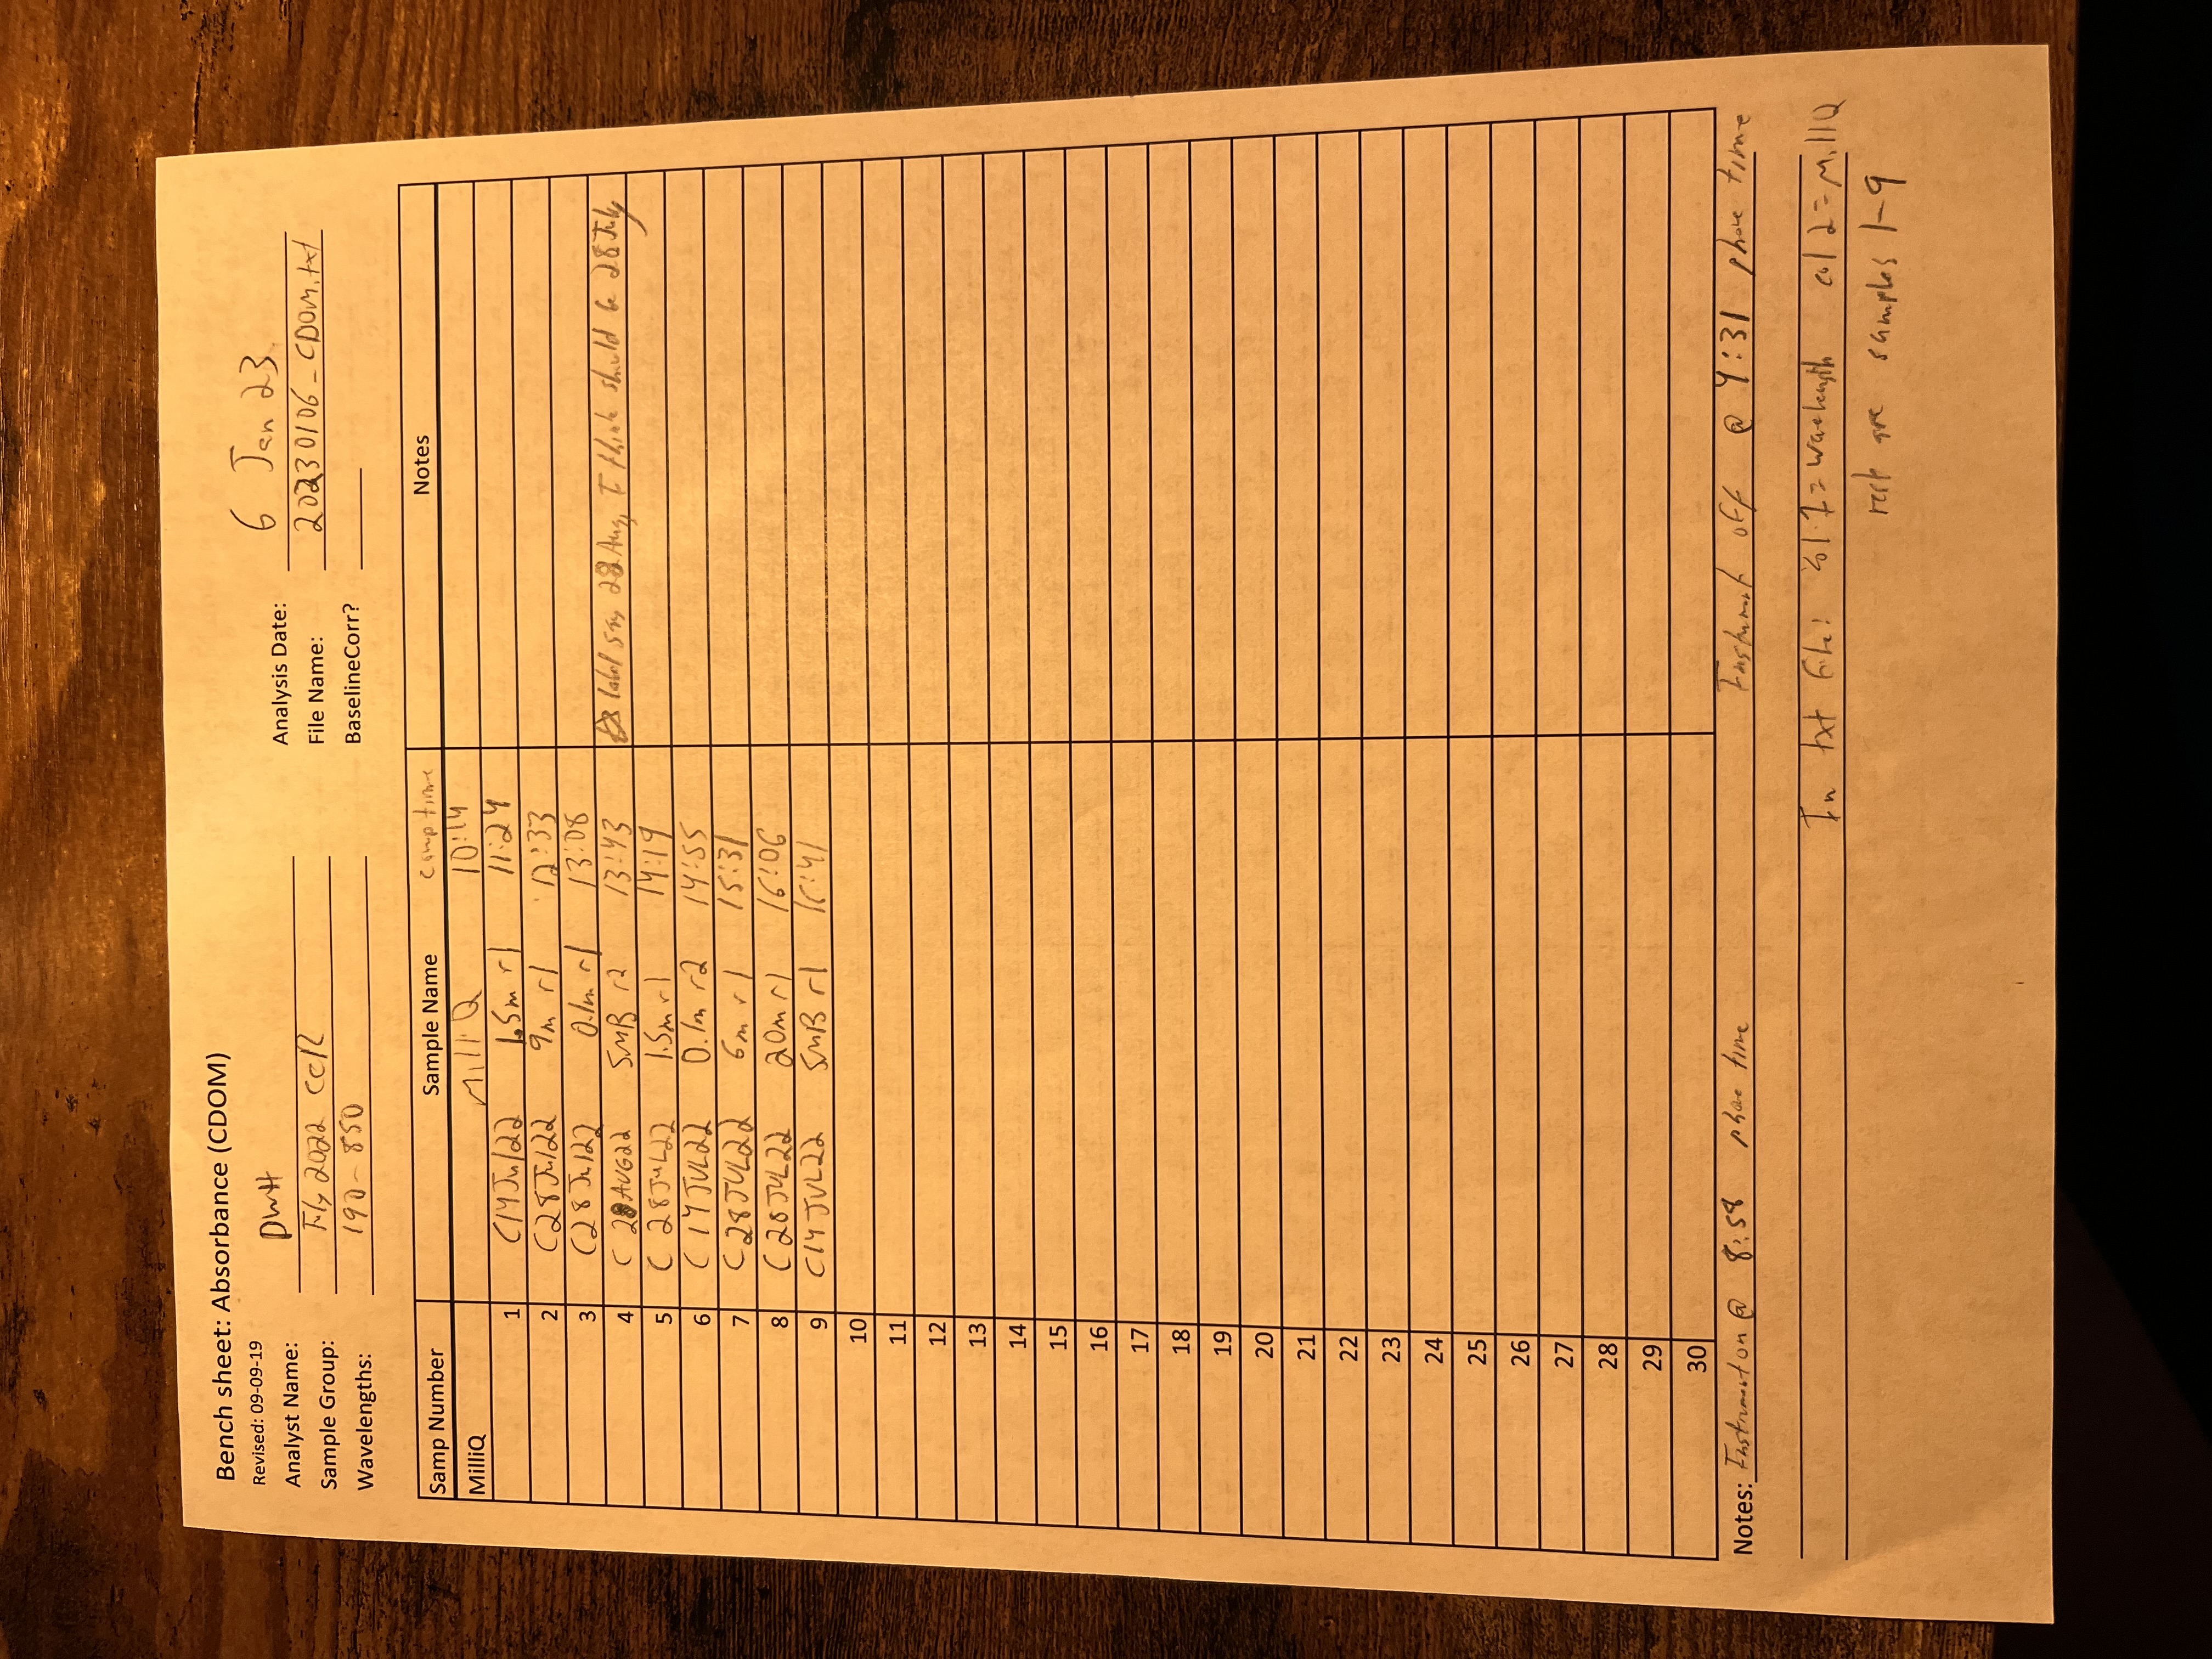 Bench sheet: Absorbance (CDOM)
Revised: 09-09-19
Analyst Name: DWH
Analysis Date: 6 Jan 23
Sample Group: 2022 CCR
File Name: 20230106_CDOM.txt
Wavelengths: 190-850
BaselineCorr?
Samp Number Sample Name comp time Notes
MilliQ MilliQ 10:14
1 C14Jul22 1.5m r1 11:24
2 C28Jul22 9m r1 12:33
3 C28Jul22 0.1m r1 13:08
4 C 28AUG22 5mB r2 13:43 label says 28 Aug, I think should be 28 July
5 C 28JUL22 1.5m r1 14:19
6 C 14JUL22 0.1m r2 14:55
7 C28JUL22 6m r1 15:31
8 C28JUL22 20m r1 16:06
9 C14JUL22 5mB r1 16:41
10
11
12
13
14
15
16
17
18
19
20
21
22
23
24
25
26
27
28
29
30
Notes: Instrument on @ 8:58 phone time Instrument off @ 4:31 phone time
In txt file: col 1 = wavelength col 2 = MilliQ
rest are samples 1-9